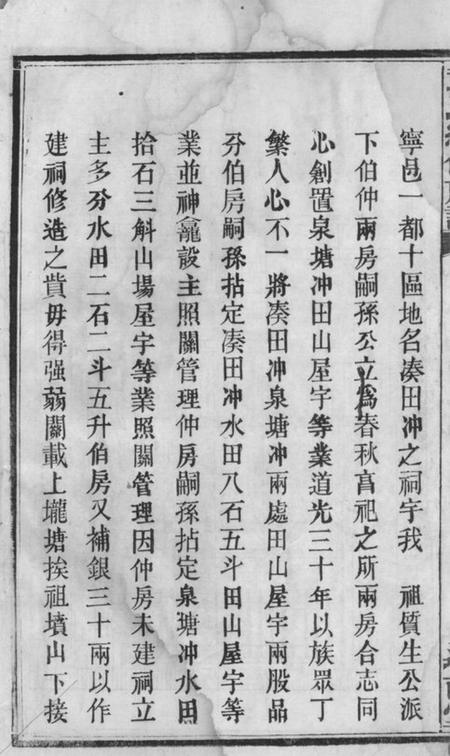 寧邑一都十區地名湊田冲之祠宇我　祖質生公派
下伯仲兩房嗣孫公立爲春秋亯祀之所兩房合志同
心創置泉塘冲田山屋宇等業道光三十年以族眾丁
繁人心不一將湊田冲泉塘冲兩處田山屋宇兩股品
分伯房嗣孫拈定湊田冲水田八石五斗田山屋宇等
業並神龕設主照關管理仲房嗣孫拈定泉塘冲水田
拾石三斛山塲屋宇等業照關管理因仲房未建祠立
主多分水田二石二斗五升伯房又補銀三十兩以作
建祠修造之貲毋得强弱關載上壠塘挨祖墳山下接